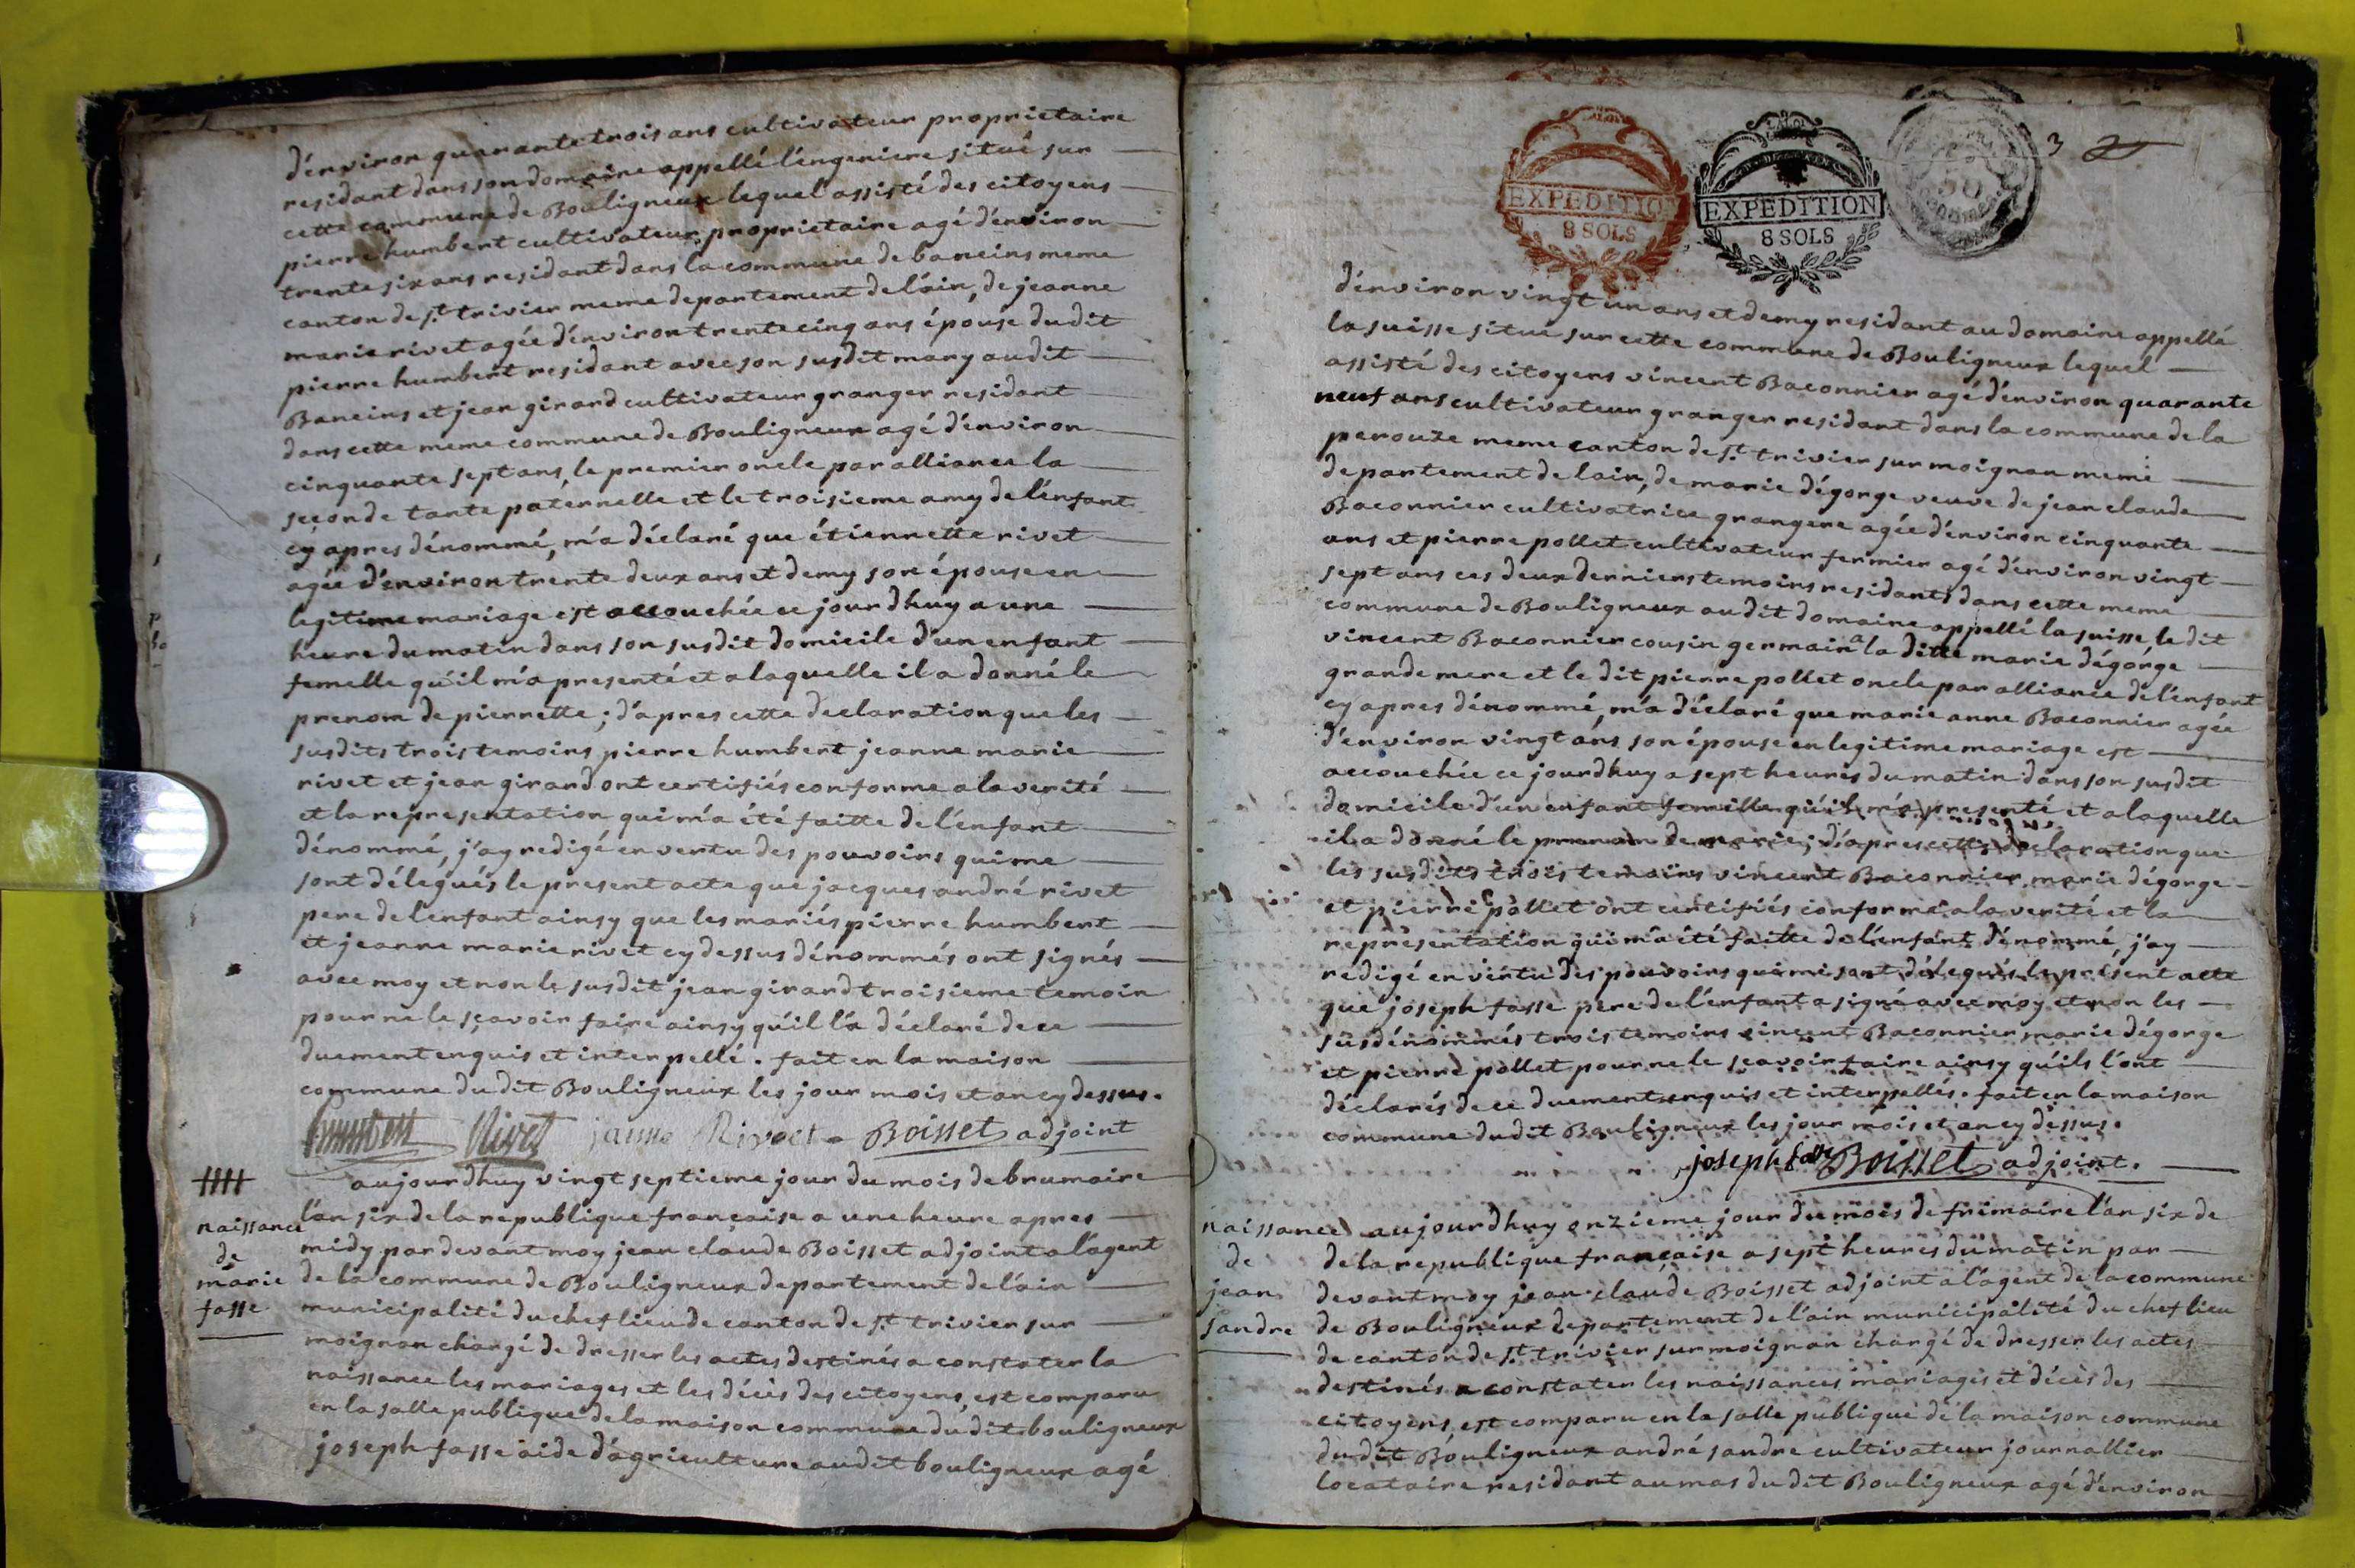 d'environ quarante trois ans cultivateur proprietaire
residant dans son domaine appellé l'engeniere situé sur
cette commune de Bouligneux lequel assisté des citoyens
pierre humbert cultivateur proprietaire agé d'environ
trente six ans residant dans la commune de baneins meme
canton de st. trivier meme departement de l'ain, de jeanne
marie rivet agée d'environ trente cinq ans épouse du dit
pierre humbert residant avec son susdit mary au dit
Baneins et jean girard cultivateur granger residant
dans cette meme commune de Bouligneux agé d'environ
cinquante sept ans, le premier oncle par alliance la
seconde tante paternelle et le troisieme amy de l'enfant
cy apres dénommé, m'a déclaré que étiennette rivet
agée d'environ trente deux ans et demy son épouse en
legitime mariage est accouchée ce jourd'huy a une
heure du matin dans son susdit domicile d'un enfant
femelle qu'il m'a presenté et a laquelle il a donné le
prenom de pierrette ; d'apres cette declaration que les
susdits trois temoins pierre humbert jeanne marie
rivet et jean girard ont certifiés conforme a la verité
et la representation qui m'a été faitte de l'enfant
dénommé, j'ay redigé en vertu des pouvoirs qui me
sont délegués le present acte que jacques andré rivet
pere de l'enfant ainsy que les mariés pierre humbert
et jeanne marie rivet cy dessus dénommés ont signés
avec moy et non le susdit jean girard troisieme temoin
pour ne le sçavoir faire ainsy qu'il l'a déclaré de ce
duement enquis et interpellé. fait en la maison
commune du dit Bouligneux les jour mois et an cy dessus.
humbert Rivet janne Rivoet Boisset adjoint
aujourdhuy vingt septieme jour du mois de brumaire
naissance de marie fasse
l'an six de la republique française a une heure apres
midy par devant moy jean claude Boisset adjoint a l'agent
de la commune de Bouligneux departement de l'ain
municipalité du chef lieu de canton de st. trivier sur
moignan chargé de dresser les actes destinés a constater la
naissance les mariages et les décès des citoyens, est comparu
en la salle publique de la maison commune du dit bouligneux
joseph fasse aide d'agriculture au dit bouligneux agé
EXPEDITION 8 SOLS
LA LOI EXPEDITION 8 SOLS
3 2
d'environ vingt un ans et demy residant au domaine appellé
la suisse situé sur cette commune de Bouligneux lequel
assisté des citoyens vincent Baconnier agé d'environ quarante
neuf ans cultivateur granger residant dans la commune de la
perouze meme canton de st. trivier sur moignan meme
departement de lain, de marie dégorge veuve de jean claude
Baconnier cultivatrice grangere agée d'environ cinquante
ans et pierre pollet cultivateur fermier agé d'environ vingt
sept ans ces deux derniers temoins residants dans cette meme
commune de Bouligneux au dit domaine appellé la suisse, le dit
vincent Baconnier cousin germain a la ditte marie dégorge
grande mere et le dit pierre pollet oncle par alliance de l'enfant
cy apres dénommé, m'a déclaré que marie anne Baconnier agée
d'environ vingt ans son épouse en legitime mariage est
accouchée ce jourdhuy a sept heures du matin dans son susdit
domicile d'un enfant femelle qu'il m'a presenté et a laquelle
il a donné le prenom de marie ; d'apres cette declaration que
les susdits trois temoins vincent Baconnier marie dégorge
et pierre pollet ont certifiés conforme a la verité et la
representation qui m'a été faitte de l'enfant dénommé, j'ay
redigé en vertu des pouvoirs qui me sont délegués le présent acte
que joseph fasse pere de l'enfant a signé avec moy et non les
susdénommés trois temoins vincent Baconnier marie dégorge
et pierre pollet pour ne le sçavoir faire ainsy qu'ils l'ont
déclarés de ce duement enquis et interpellés. fait en la maison
commune du dit Bouligneux les jour mois et an cy dessus.
joseph fasse Boisset adjoint.
naissance de jean sandre
aujourdhuy onzieme jour du mois de frimaire l'an six de
de la republique française a sept heures du matin par
devant moy jean claude Boisset adjoint a l'agent de la commune
de Bouligneux departement de l'ain municipalité du chef lieu
de canton de st. trivier sur moignan chargé de dresser les actes
destinés a constater les naissances mariages et décès des
citoyens, est comparu en la salle publique de la maison commune
du dit Bouligneux andré sandre cultivateur journallier
locataire residant au mas du dit Bouligneux agé d'environ